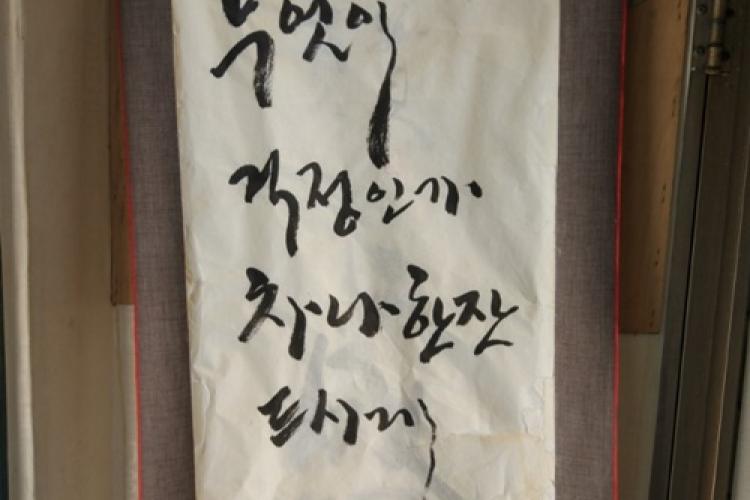 무엇이
걱정인가
차나한잔
드시게